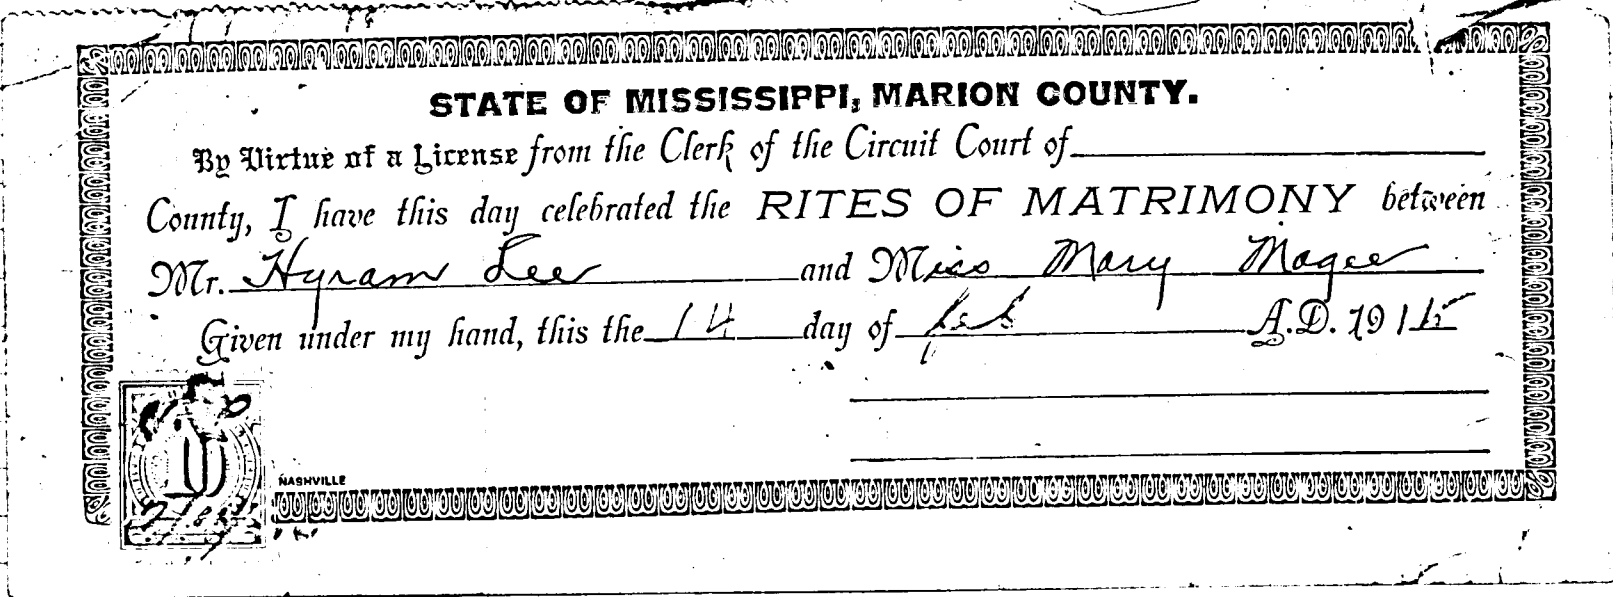 STATE OF MISSISSIPPI, MARION COUNTY.
By Virtue of a License from the Clerk of the Circuit Court of
County, I have this day celebrated the RITES OF MATRIMONY between
Mr. Hyram Lee and Miss Mary Magee
Given under my hand, this the 14 day of feb A.D. 1915
10
NASHVILLE